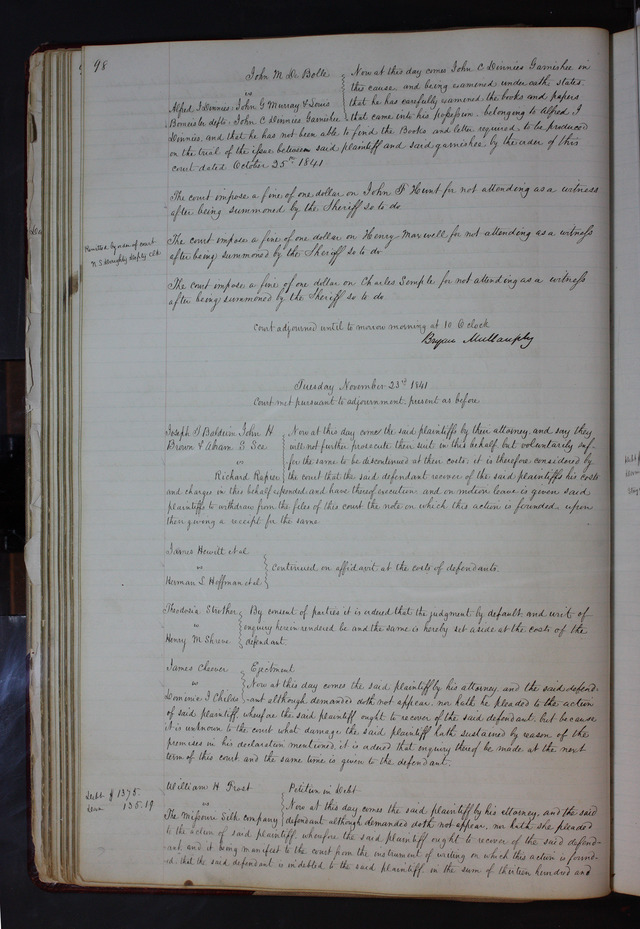 98
John M D Bolle
vs
Alfred J Dinnies, John G Murray & Louis
defts. John C Dinnies Garnishee
Now at this day comes John C Dinnies Garnishee in
this cause and being examined under oath states
that he has carefully examined the books and papers
that came into his possession belonging to Alfred J
Dinnies, and that he has not been able to find the Books and letter required to be produced
on the trial of the issue between said plaintiff and said garnishee, by the order of this
court dated October 25th 1841
The court impose a fine of one dollar on John F Hunt for not attending as a witness
after being summoned by the Sheriff so to do
Remitted by order of court
Depty Clk
The court impose a fine of one dollar on Henry Maxwell for not attending as a witness
after being summoned by the Sheriff so to do
The court impose a fine of one dollar on Charles Semple for not attending as a witness
after being summoned by the Sheriff so to do
Court adjourned until to morrow morning at 10 O clock
Bryan Mullanphy
Tuesday November 23rd 1841
Court met pursuant to adjournment, present as before
Joseph J Baldwin John H
Brown &
vs
Richard Rapier
Now at this day come the said plaintiffs by their attorney and say they
will not further prosecute their suit in this behalf, but voluntarily suf-
fer the same to be discontinued at their costs, it is therefore considered by
the court that the said defendant recover of the said plaintiffs his costs
and charges in this behalf expended and have thereof execution and on motion leave is given said
plaintiffs to withdraw from the files of this court the note on which this action is founded upon
their giving a receipt for the same
James Hewitt et al
vs
Herman L Hoffman et al
Continued on affidavit at the costs of defendants.
Theodosia Strother
vs
Henry M Shreve
By consent of parties it is ordered that the judgment by default and writ of
enquiry herein rendered be and the same is hereby set aside at the costs of the
defendant.
James Cheever
vs
Dominie J Childs
Ejectment
Now at this day comes the said plaintiff by his attorney and the said defend-
ant although demanded doth not appear nor hath he pleaded to the action
of said plaintiff, wherefore the said plaintiff ought to recover of the said defendant, but because
it is unknown to the court what damage the said plaintiff hath sustained by reason of the
premises in his declaration mentioned, it is ordered that enquiry thereof be made at the next
term of this court and the same time is given to the defendant.
Debt $1375.
136.19
William H Frost
vs
The Missouri Silk Company
Petition in Debt
Now at this day comes the said plaintiff by his attorney, and the said
defendant although demanded doth not appear, nor hath she pleaded
to the action of said plaintiff, wherefore the said plaintiff ought to recover of the said defend-
ant and it being manifest to the court from the instrument of writing on which this action is found-
ed, that the said defendant is indebted to the said plaintiff in the sum of thirteen hundred and